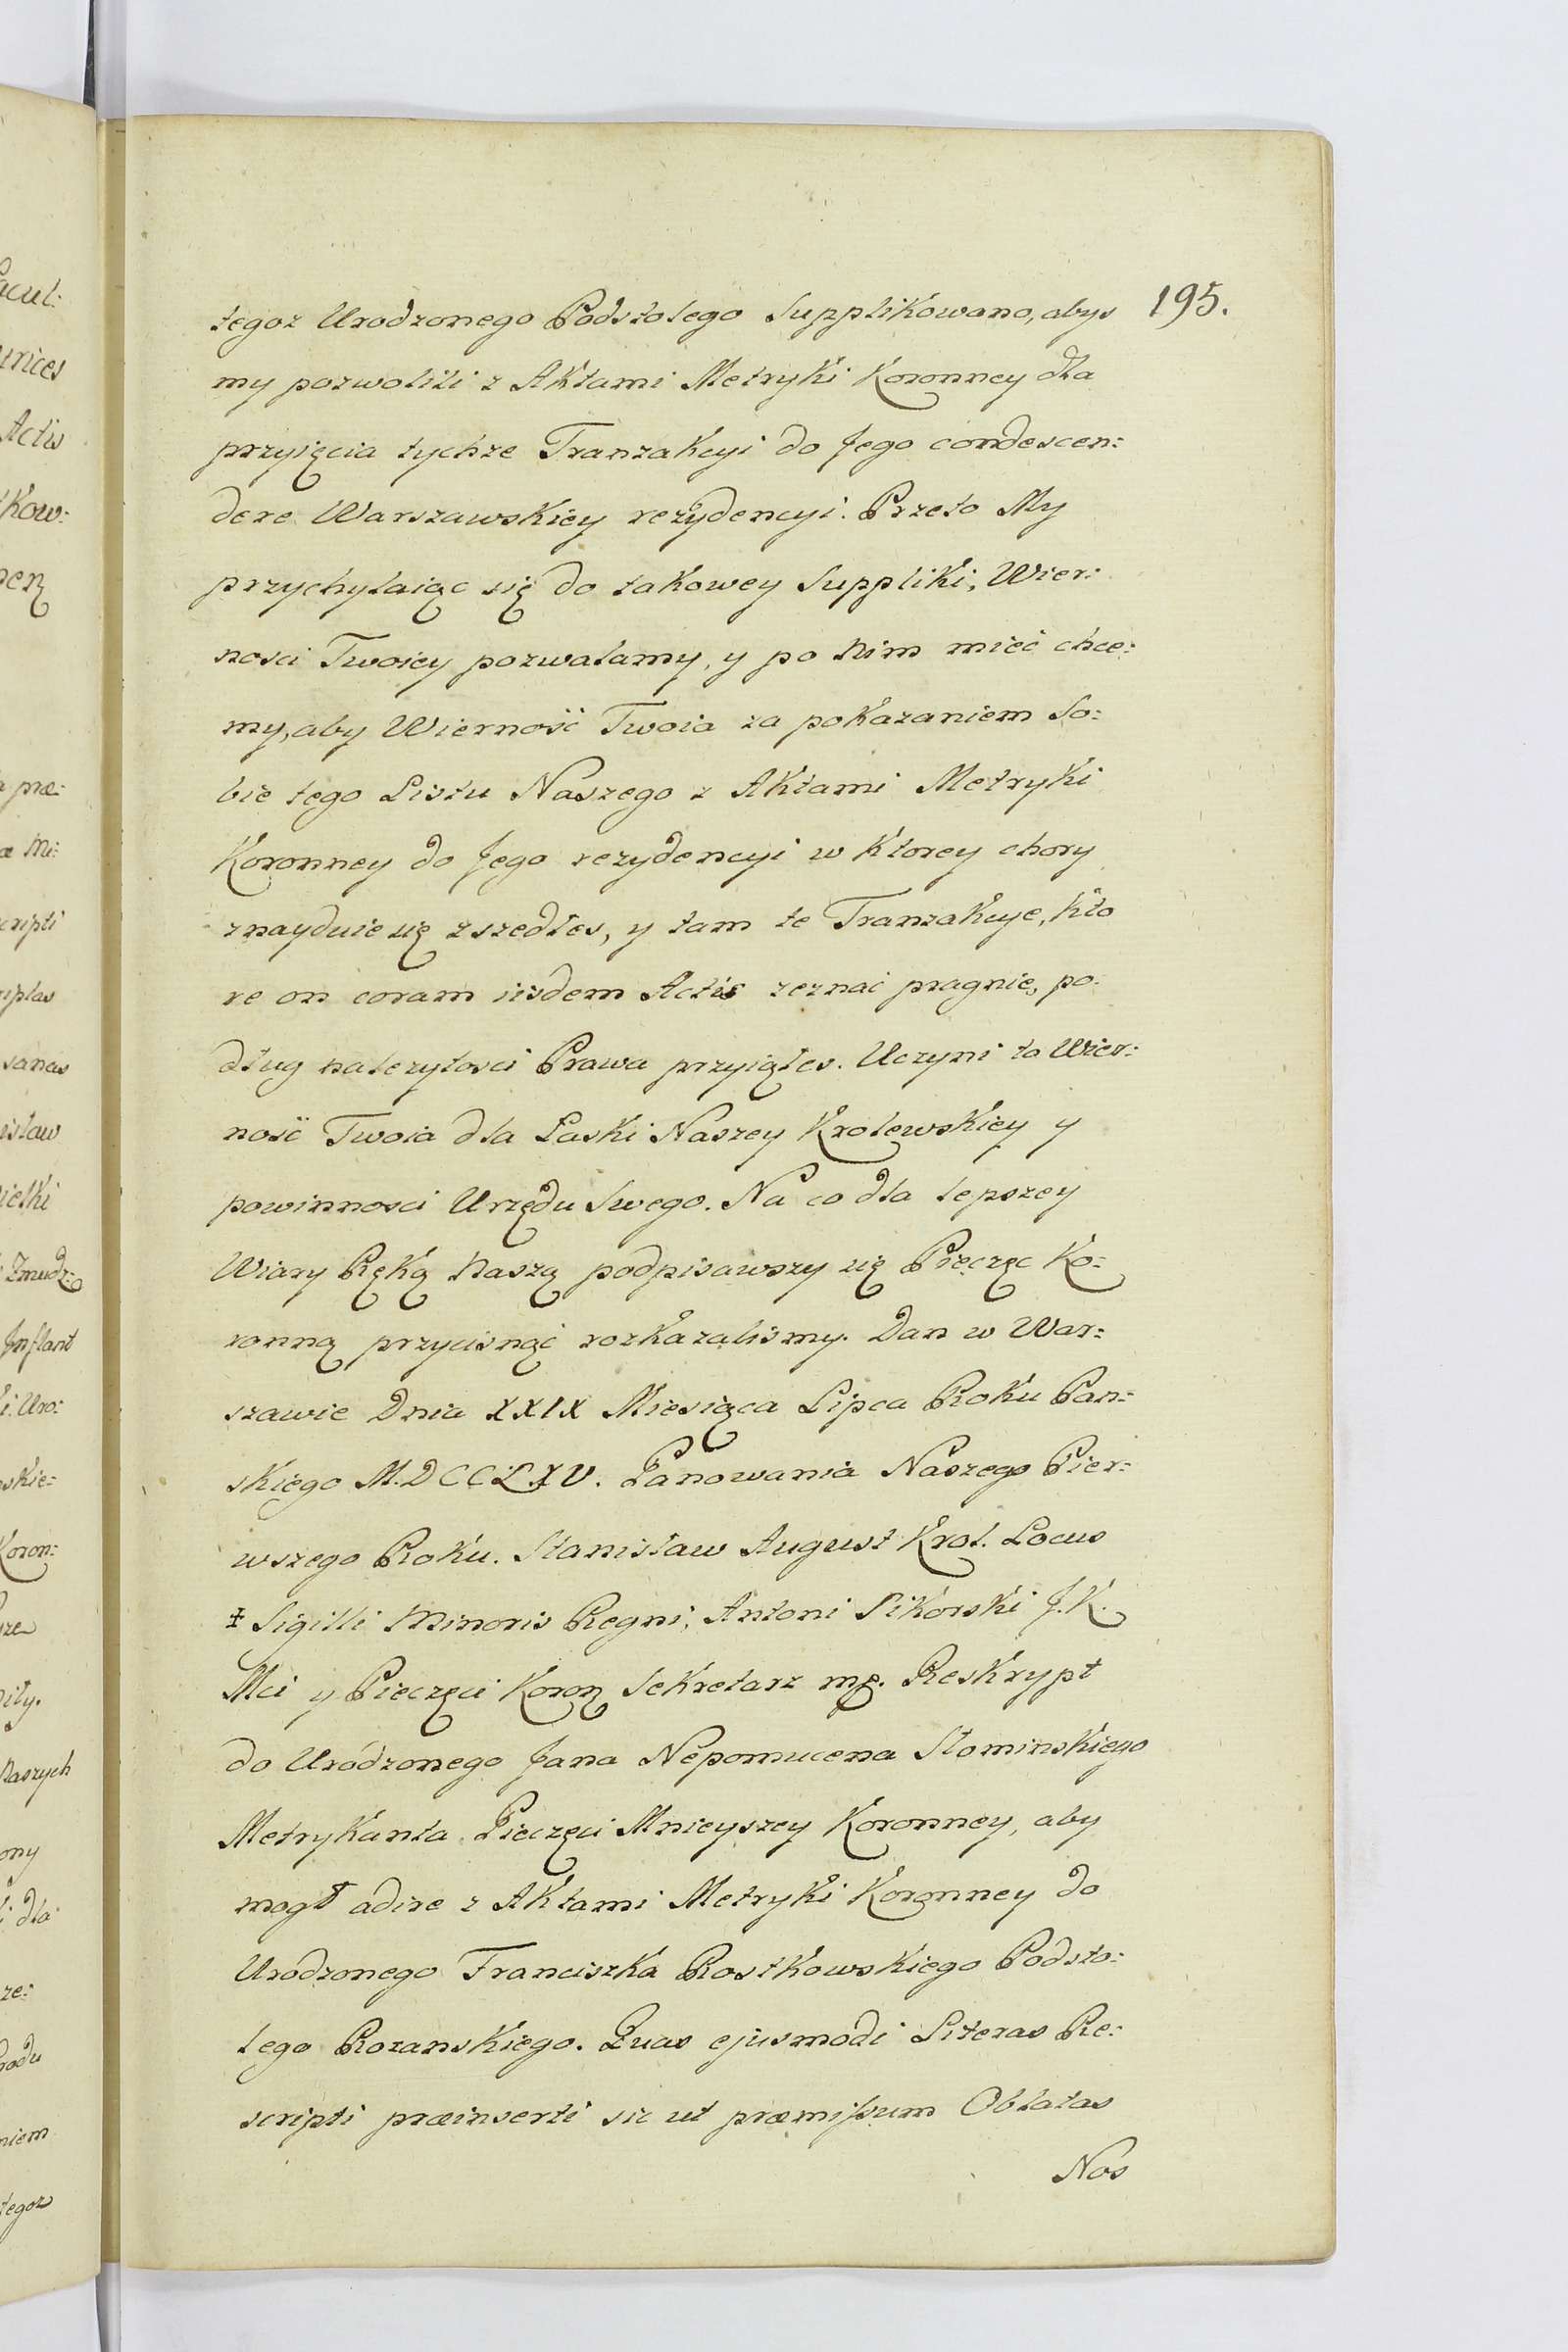 195.
tegoz Urodzonego Podstolego Supplikowano, abys
my pozwolili z Aktami Metryki Koronney dla
przyięcia tychze Tranzakcyi do Jego condescen:
dere Warszawskiey rezydencyi. Przeto My
przychylaiąc się do takowey Suppliki, Wier:
nosci Twoiey pozwalamy, y po Nim mieć chce:
my, aby Wierność Twoia za pokazaniem So:
bie tego Listu Naszego z Aktami Metryki
Koronney do Jego rezydencyi w Ktorey chory
znayduie się zszedłes, y tam te Tranzakcye, kto
re on coram iisdem Actis zeznać pragnie, po:
dług należytosci Prawa przyiąłes. Uczyni to Wier:
ność Twoia dla Łaski Naszey Krolewskiey y
powinnosci Urzędu Swego. Na co dla lepszey
Wiary Ręką Naszą podpisawszy się Pieczęc Ko:
ronną przycisnąć rozkazalismy. Dan w War:
szawie Dnia XXIX Miesiąca Lipca Roku Pan:
skiego M.DCCLXV. Panowania Naszego Pier:
wszego Roku. Stanisław August Krol. Locus
‡ Sigilli Minoris Regni, Antoni Sikorski J.K.
Mci y Pieczęci Koron Sekretarz mp. Reskrypt
do Urodzonego Jana Nepomucena Słominskiego
Metrykanta Pieczęci Mnieyszey Koronney, aby
mogł adire z Aktami Metryki Koronney do
Urodzonego Franciszka Rostkowskiego Podsto:
lego Rozanskiego. Quas ejusmodi Literas Re:
scripti præinserti sic ut præmissum Oblatas
Nos
acul:
unices
Actis
Kow:
a præ:
æ Mi:
cripti
riptas
isław
ielki
Zmudz
Inflant
i. Uro:
skie:
Koron:
iły.
Naszych
ony
i dla
ze:
rodu
niem
tegoz